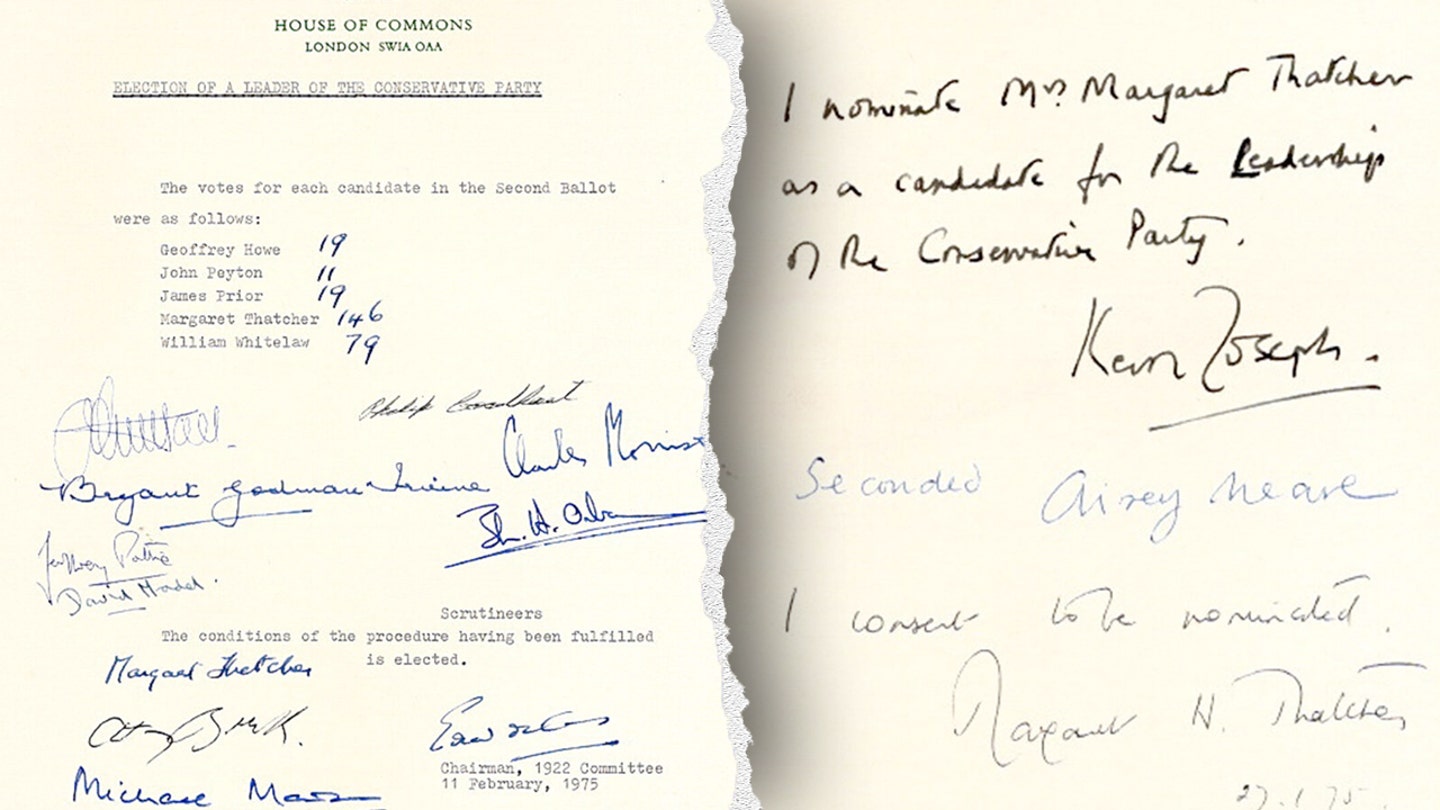 HOUSE OF COMMONS
LONDON SW1A 0AA
ELECTION OF A LEADER OF THE CONSERVATIVE PARTY
The votes for each candidate in the Second Ballot
were as follows:
Geoffrey Howe 19
John Peyton 11
James Prior 19
Margaret Thatcher 146
William Whitelaw 79
Philip Goodhart
Charles Morrison
Bryant Godman Irvine
Geoffrey Pattie
David Madel
Scrutineers
The conditions of the procedure having been fulfilled
Margaret Thatcher is elected.
Chairman, 1922 Committee
11 February, 1975
Michael
I nominate Mrs Margaret Thatcher
as a candidate for the Leadership
of the Conservative Party.
Keith Joseph.
Seconded Airey Neave
I consent to be nominated.
Margaret H. Thatcher
27.1.75